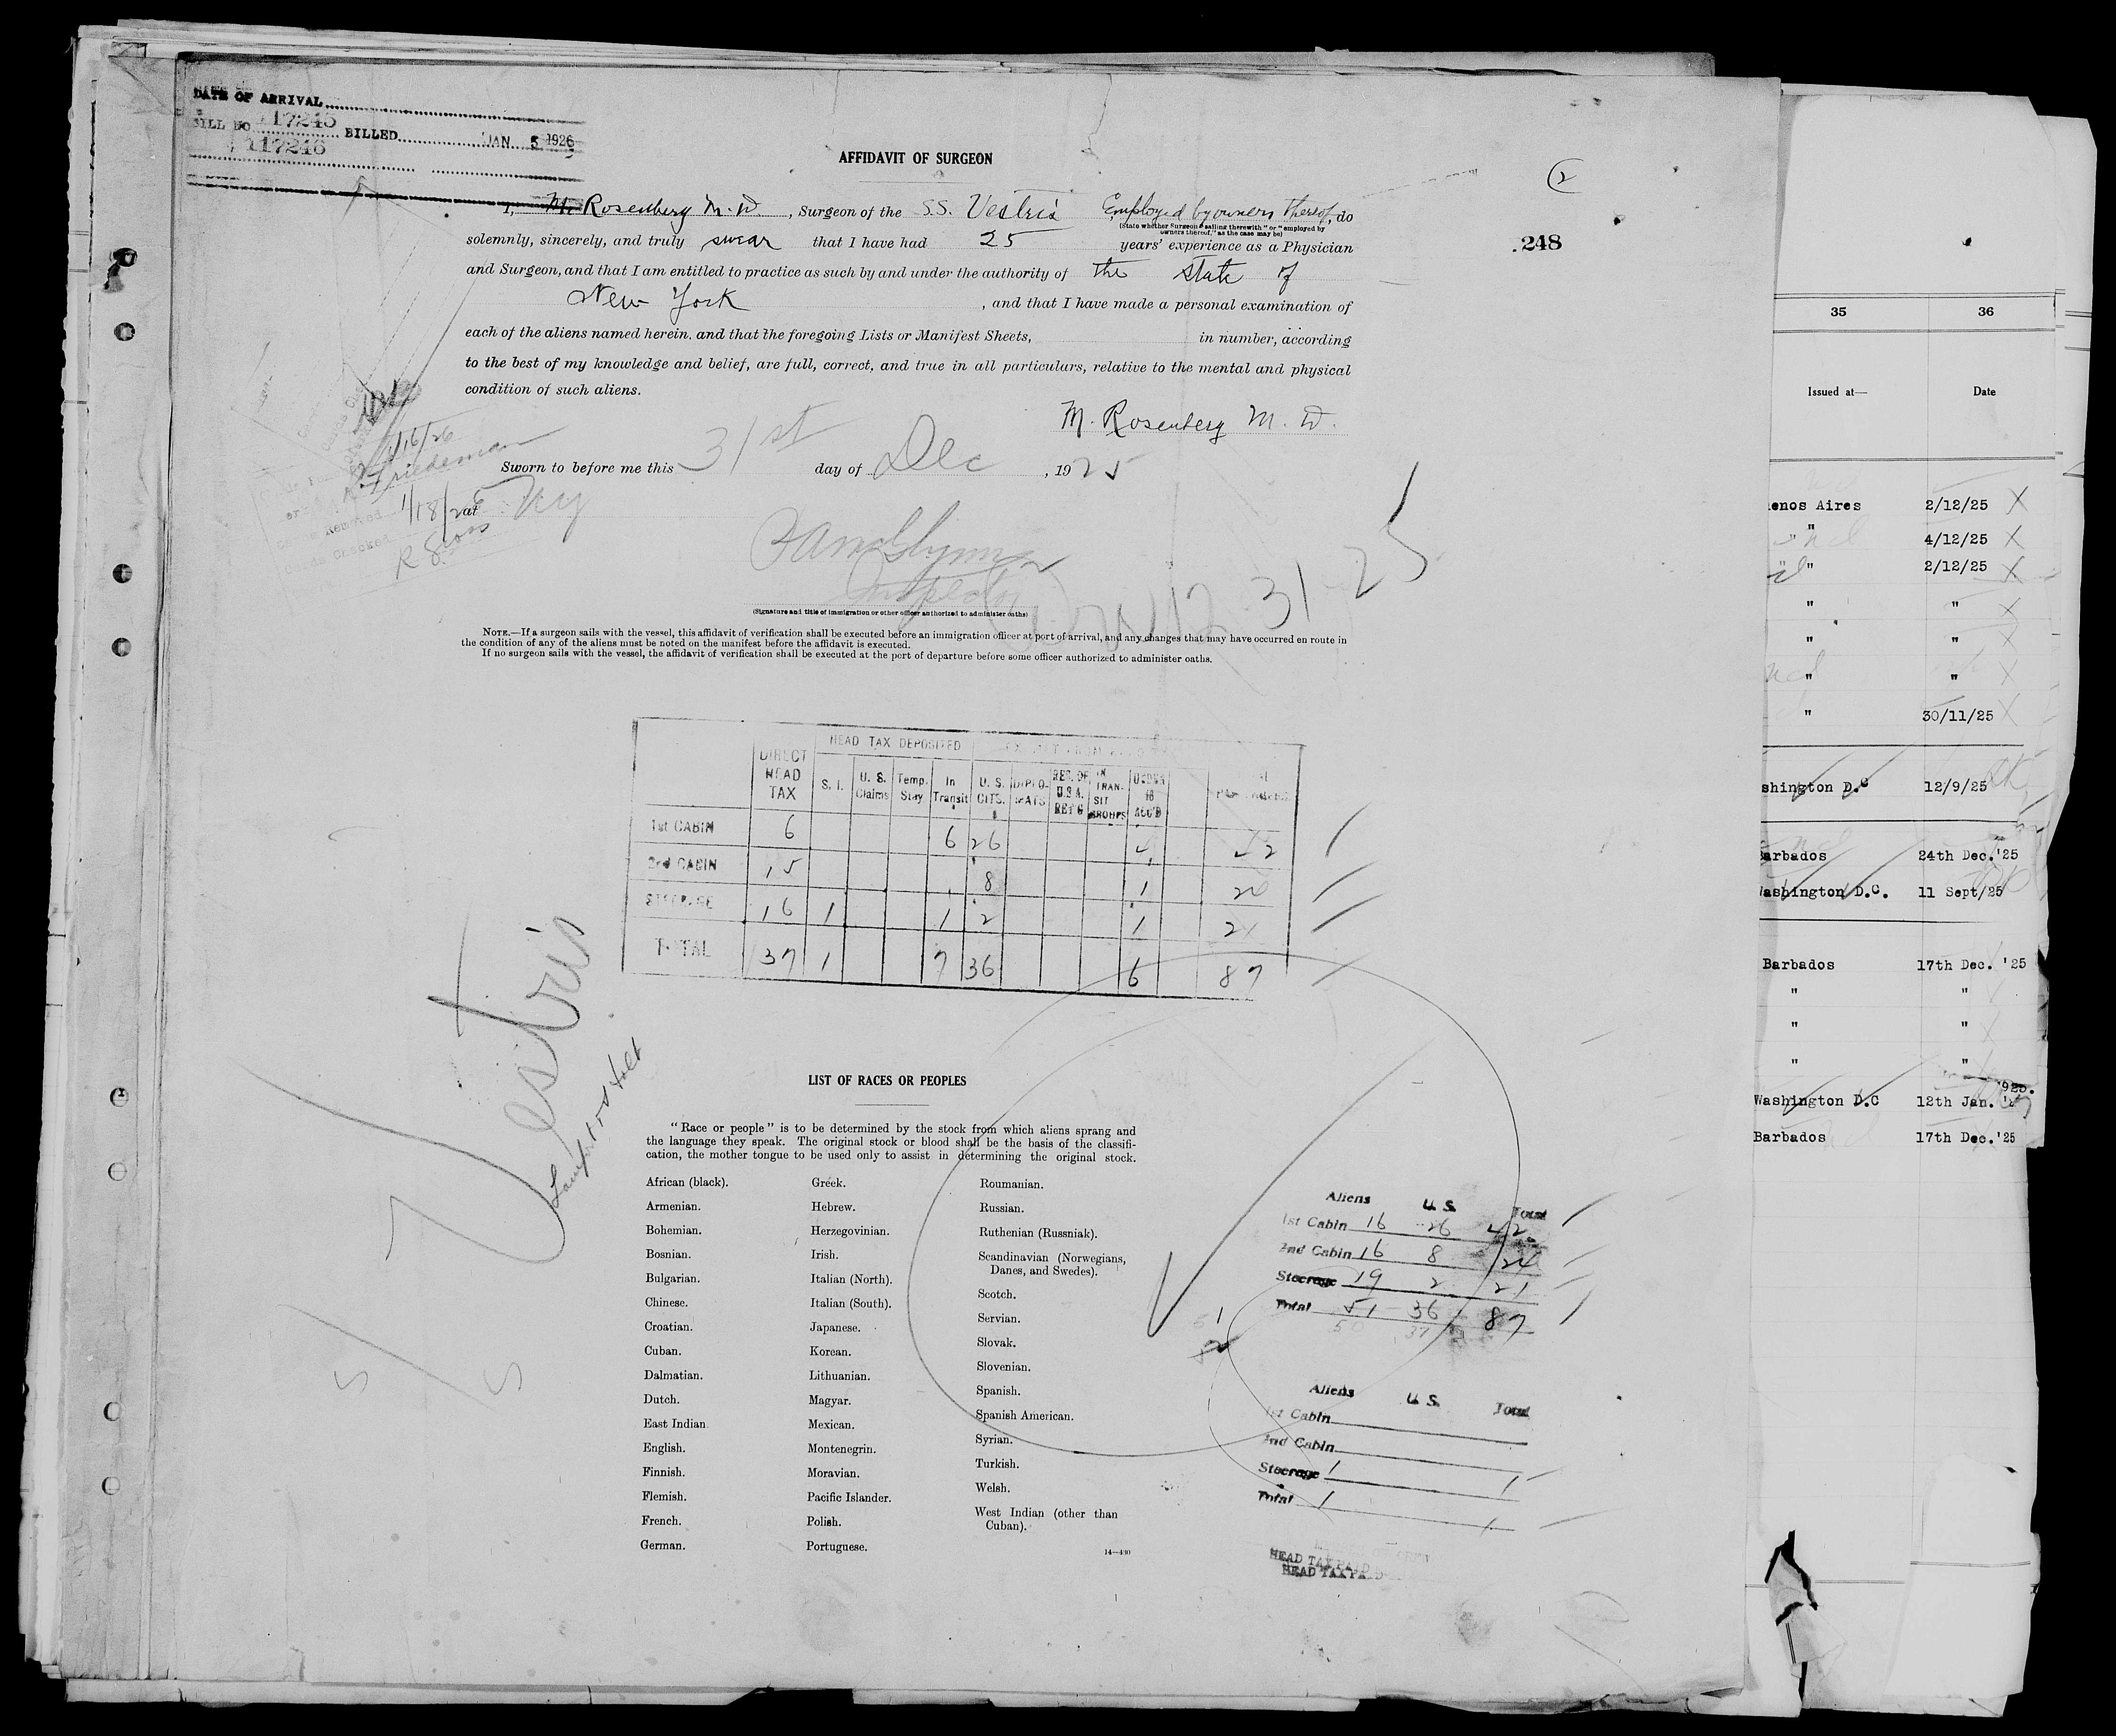 DATE OF ARRIVAL
BILL NO 117245 BILLED JAN 5 1926
117246
AFFIDAVIT OF SURGEON
2
I, M. Rosenberg M.D., Surgeon of the S.S. Vestris Employed by owners thereof, do
(State whether Surgeon "sailing therewith" or "employed by owners thereof," as the case may be)
248
solemnly, sincerely, and truly swear that I have had 25 years' experience as a Physician
and Surgeon, and that I am entitled to practice as such by and under the authority of the state of
New York, and that I have made a personal examination of
each of the aliens named herein, and that the foregoing Lists or Manifest Sheets, in number, according
to the best of my knowledge and belief, are full, correct, and true in all particulars, relative to the mental and physical
condition of such aliens.
M. Rosenberg M.D.
1/16/26
Friedeman
Sworn to before me this 31st day of Dec, 1925
1/18/26
at NY
R Gross
Inspector
12 31-25
(Signature and title of immigration or other officer authorized to administer oaths)
NOTE.—If a surgeon sails with the vessel, this affidavit of verification shall be executed before an immigration officer at port of arrival, and any changes that may have occurred en route in
the condition of any of the aliens must be noted on the manifest before the affidavit is executed.
If no surgeon sails with the vessel, the affidavit of verification shall be executed at the port of departure before some officer authorized to administer oaths.
HEAD TAX DEPOSITED
DIRECT HEAD TAX S. I. U. S. Claims Temp. Stay In Transit U. S. CITS. DIPLOMATS RES. OF U.S.A. RET'G IN TRANSIT GROUPS UNDER 16 ACC'D
1st CABIN 6 6 26 4 42
2nd CABIN 15 8 1 24
STEERAGE 16 1 1 2 1 21
TOTAL 37 1 7 36 6 87
Vestris
Lamport and Holt
S S
LIST OF RACES OR PEOPLES
"Race or people" is to be determined by the stock from which aliens sprang and
the language they speak. The original stock or blood shall be the basis of the classifi-
cation, the mother tongue to be used only to assist in determining the original stock.
African (black).
Armenian.
Bohemian.
Bosnian.
Bulgarian.
Chinese.
Croatian.
Cuban.
Dalmatian.
Dutch.
East Indian.
English.
Finnish.
Flemish.
French.
German.
Greek.
Hebrew.
Herzegovinian.
Irish.
Italian (North).
Italian (South).
Japanese.
Korean.
Lithuanian.
Magyar.
Mexican.
Montenegrin.
Moravian.
Pacific Islander.
Polish.
Portuguese.
Roumanian.
Russian.
Ruthenian (Russniak).
Scandinavian (Norwegians,
Danes, and Swedes).
Scotch.
Servian.
Slovak.
Slovenian.
Spanish.
Spanish American.
Syrian.
Turkish.
Welsh.
West Indian (other than
Cuban).
14—430
Aliens U. S. Total
1st Cabin 16 26 42
2nd Cabin 16 8 24
Steerage 19 2 21
Total 51 36 87
50 37
Aliens U. S. Total
1st Cabin
2nd Cabin
Steerage 1 1
Total 1 1
HEAD TAX PAID
HEAD TAX PAID
35 36
Issued at— Date
enos Aires 2/12/25
" " 4/12/25
" 2/12/25
" "
" "
" "
" 30/11/25
shington D.C 12/9/25
Barbados 24th Dec.'25
Washington D.C. 11 Sept/25
Barbados 17th Dec. '25
" "
" "
" "
Washington D.C 12th Jan. '925.
Barbados 17th Dec.'25